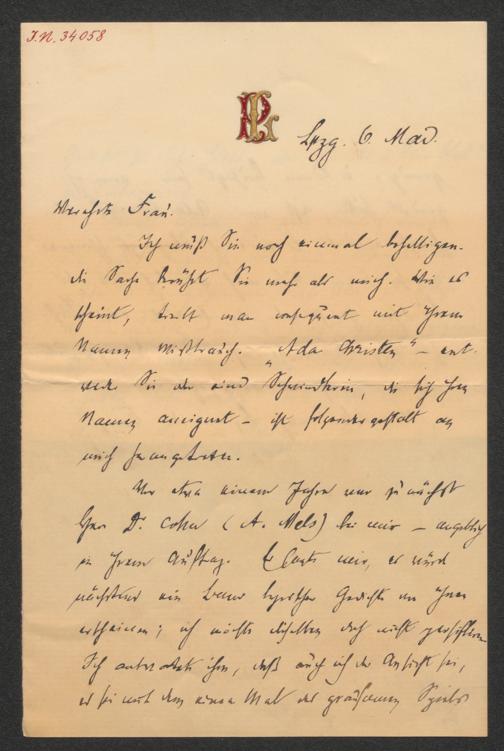 I.N. 34058
PL
Lpzg. 6. Mai.
Verehrte Frau.
Ich muß Sie noch einmal behelligen.
die Sache berührt Sie mehr als mich. Wie es
scheint, treibt man consequent mit Ihrem
Namen Mißbrauch. „Ada Christen" – ent-
weder Sie oder eine Schwindlerin, die sich Ihren
Namen aneignet – ist folgendergestalt an
mich herangetreten.
Vor etwa einem Jahre war zunächst
Herr D. Cohn (A. Mels) bei mir – angeblich
in Ihrem Auftrag. Er sagte mir, er würde
nächstens ein Band lyrischer Gedichte von Ihnen
erscheinen; ich möchte dieselben doch nicht persifliren
Ich antwortete ihm, daß auch ich der Ansicht sei,
es sei mit dem einen Mal des grausamen Spiels